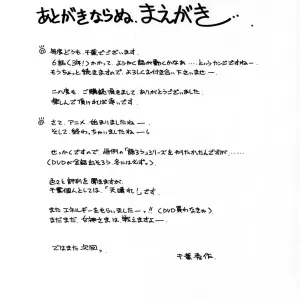 あとがきならぬ、まえがき…
毎度どうも、千葉でございます。
6話(3年!)かかって、ようやく話が動くかなぁ……というカンジですねー。
もうちょっと続きますので、よろしくお付き合い下さいませー
この度も、ご購読頂きまして、ありがとうございました。
楽しんで頂ければ幸いです。
さて、アニメ始まりましたねー。
そして、終わっちゃいましたねーし
せっかくですので、恒例の「語ろうシリーズをやりたかったんですが、……
(DVDが全話出そろう、冬には必ず。)
色々と評判を聞きますが、
千葉個人としては、「天晴れ!」です。
またエネルギーをもらいましたーッ!!(DVD買わなきゃ)
まだまだ、女神さまは戦えますよー
ではまた次回。
千葉秀作